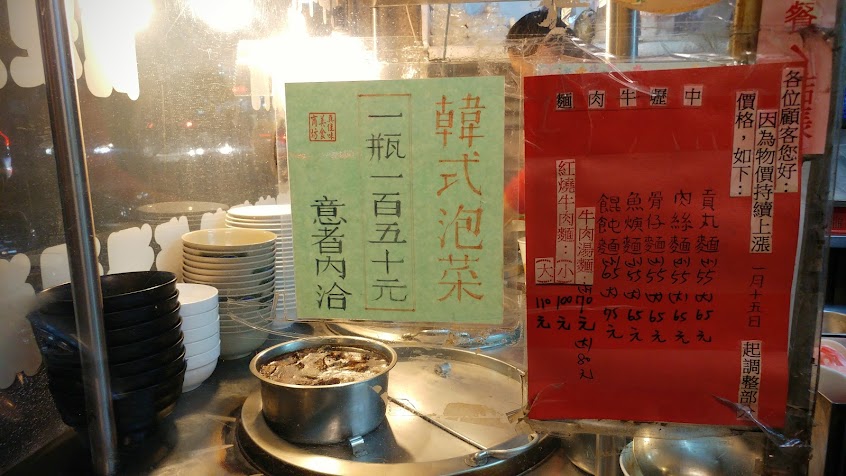 韓式泡菜
一瓶一百五十元
意者內洽
中壢牛肉麵
各位顧客您好：
因為物價持續上漲
一月十五日
起調整部
價格，如下：
貢丸麵55 65元
肉絲麵55 65元
骨仔麵55 65元
魚焿麵55 65元
餛飩麵65 75元
牛肉湯麵：70 80元
紅燒牛肉麵：(小) 100元
(大) 110元